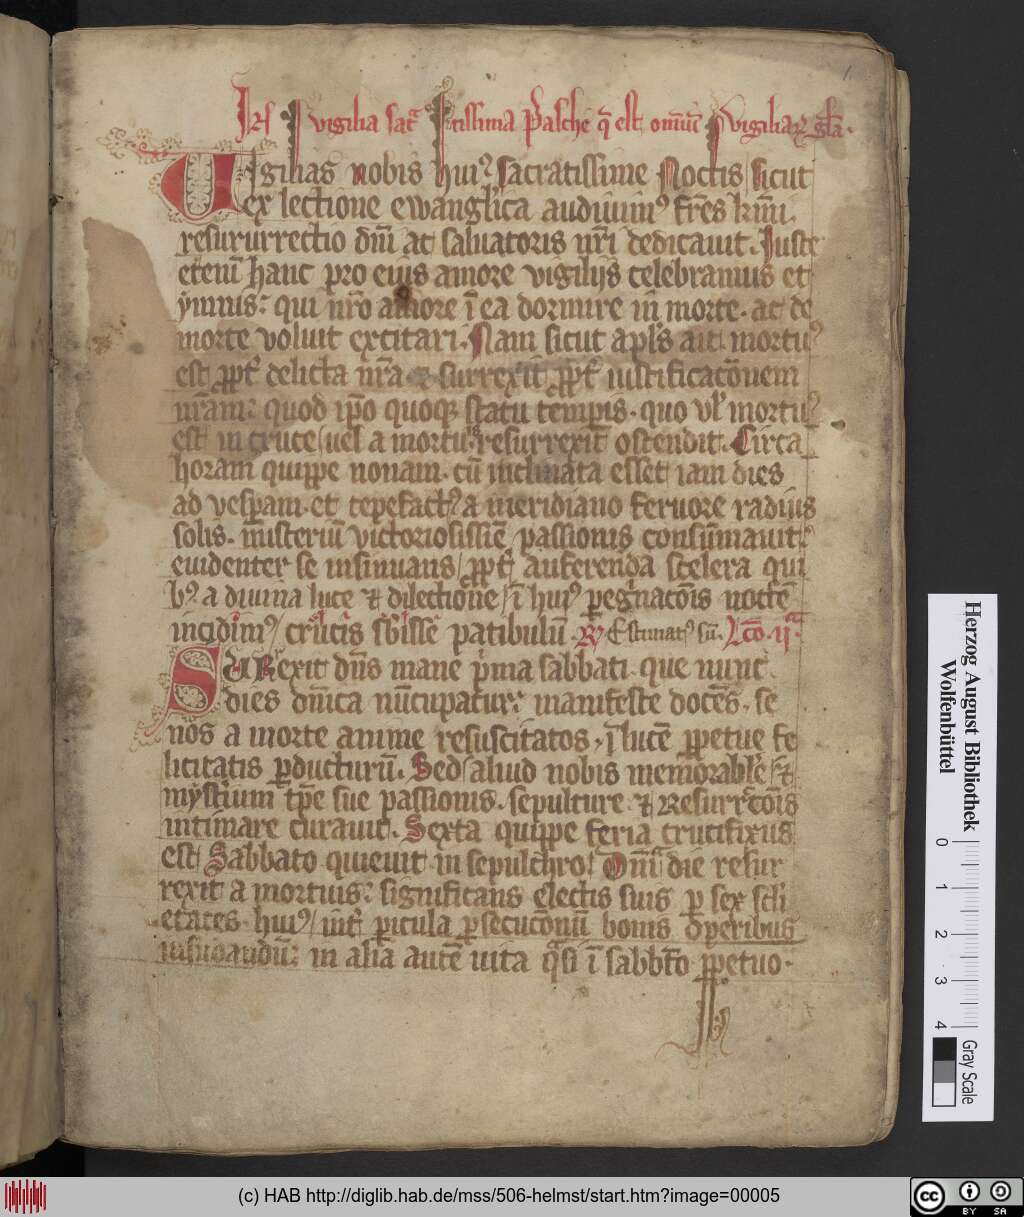 In vigilia sac͛tissima Pasche q̄ est om̄iū vigiliaꝝ gl̄a.
Vigilias nobis huiꝰ sacratissime Noctis sicut
ex lectione ewangl̓ica audiuimꝰ fr̄es kr̄mi.
resururrectio dn̄i ac saluatoris nr̄i dedicauit. Juste
etenī hanc pro eius amore vigilijs celebramus et
ymnis: qui nr̄o amore ī ea dormire in morte. ac de
morte voluit excitari. Nam sicut apl̓s ait mortuꝰ
est ꝓpt̓ delicta nr̄a ⁊ surrexit ꝓpt̓ iustificacōnem
nr̄am: quod ip̄o quoqꝫ statu temꝑis. quo vl̓ mortuꝰ
est in cruce uel a mortuis resurrexit ostendit. Circa
horam quippe nonam. cū inclinata esset iam dies
ad vesꝑam. et tepefactꝰ a meridiano feruore radius
solis. misteriū victoriosissīe passionis consūmauit:
euidenter se insinuans ꝓpt̓ auferenda scelera qui
bꝰ a diuina luce ⁊ dilectione ī huiꝰ ꝑegͥnacōis noctē
incidimꝰ crucis sb̓isse patibulū. ℞ Estimatꝰ sū. Lc̄o. ijᵃ
Surrexit dn̄s mane pͥma sabbati. que nunc
dies dn̄ica nūcupatur: manifeste docēs. se
nos a morte anime resuscitatos. ī lucē ꝑpetue fe
licitatis ꝑducturū. Sed aliud nobis memorabile ⁊
mysterium tꝑe sue passionis. sepulture ⁊ Resurrc̄ōis
intimare curauit. Sexta quippe feria crucifixus
est Sabbato quieuit in sepulchro. Dn̄icᵃ die resur
rexit a mortuis: significans electis suis ꝑ sex scl̓i
etates. huiꝰ int̓ ꝑicula ꝑsecucōnū bonis oꝑeribus
insudandū: in alia autē uita qͣsi ī sabb̄to ꝑpetuo.
1
Herzog August Bibliothek
Wolfenbüttel
0 1 2 3 4
Gray Scale
(c) HAB http://diglib.hab.de/mss/506-helmst/start.htm?image=00005
cc BY SA